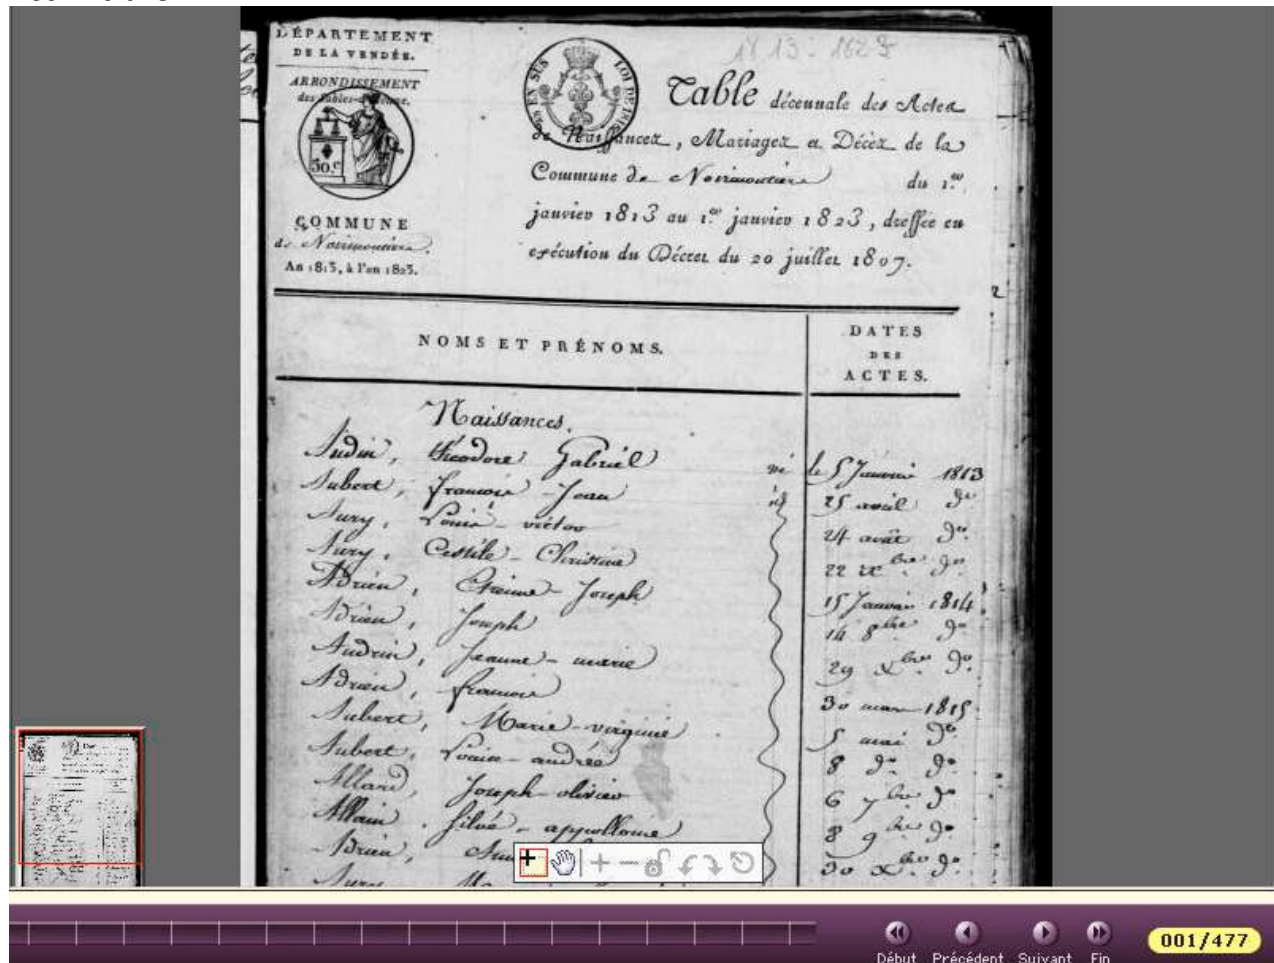 DÉPARTEMENT
DE LA VENDÉE.
ARRONDISSEMENT
des Sables-d'Olonne.
50.c
COMMUNE
de Noirmoutier.
An 1813, à l'an 1823.
EN SUS
LOI DE
1813-1823
Table décennale des Actes
de Naissances, Mariages et Décès de la
Commune de Noirmoutier du 1.er
janvier 1813 au 1.er janvier 1823, dressée en
exécution du Décret du 20 juillet 1807.
2
NOMS ET PRÉNOMS.
DATES
DES
ACTES.
Naissances.
Audin, théodore Gabriel né le 5 Janvier 1813
Aubert, françois-Jean id 25 avril do
Aury, Louis-victor 24 août do
Aury, Cestile-Christine 22 do
Adrien, Etienne-Joseph 15 Janvier 1814
Adrien, Joseph 14 8bre do
Audrin, Jeanne-marie 29 Xbre do
Adrien, françois 30 mars 1815
Aubert, Marie-virginie 5 mai do
Aubert, Louise-andrée 8 do do
Allard, Joseph-olivier 6 7bre do
Allain, Silvé-appollonie 8 9bre do
Adrien, 30 Xbre do
Aury
Début Précédent Suivant Fin
001/477